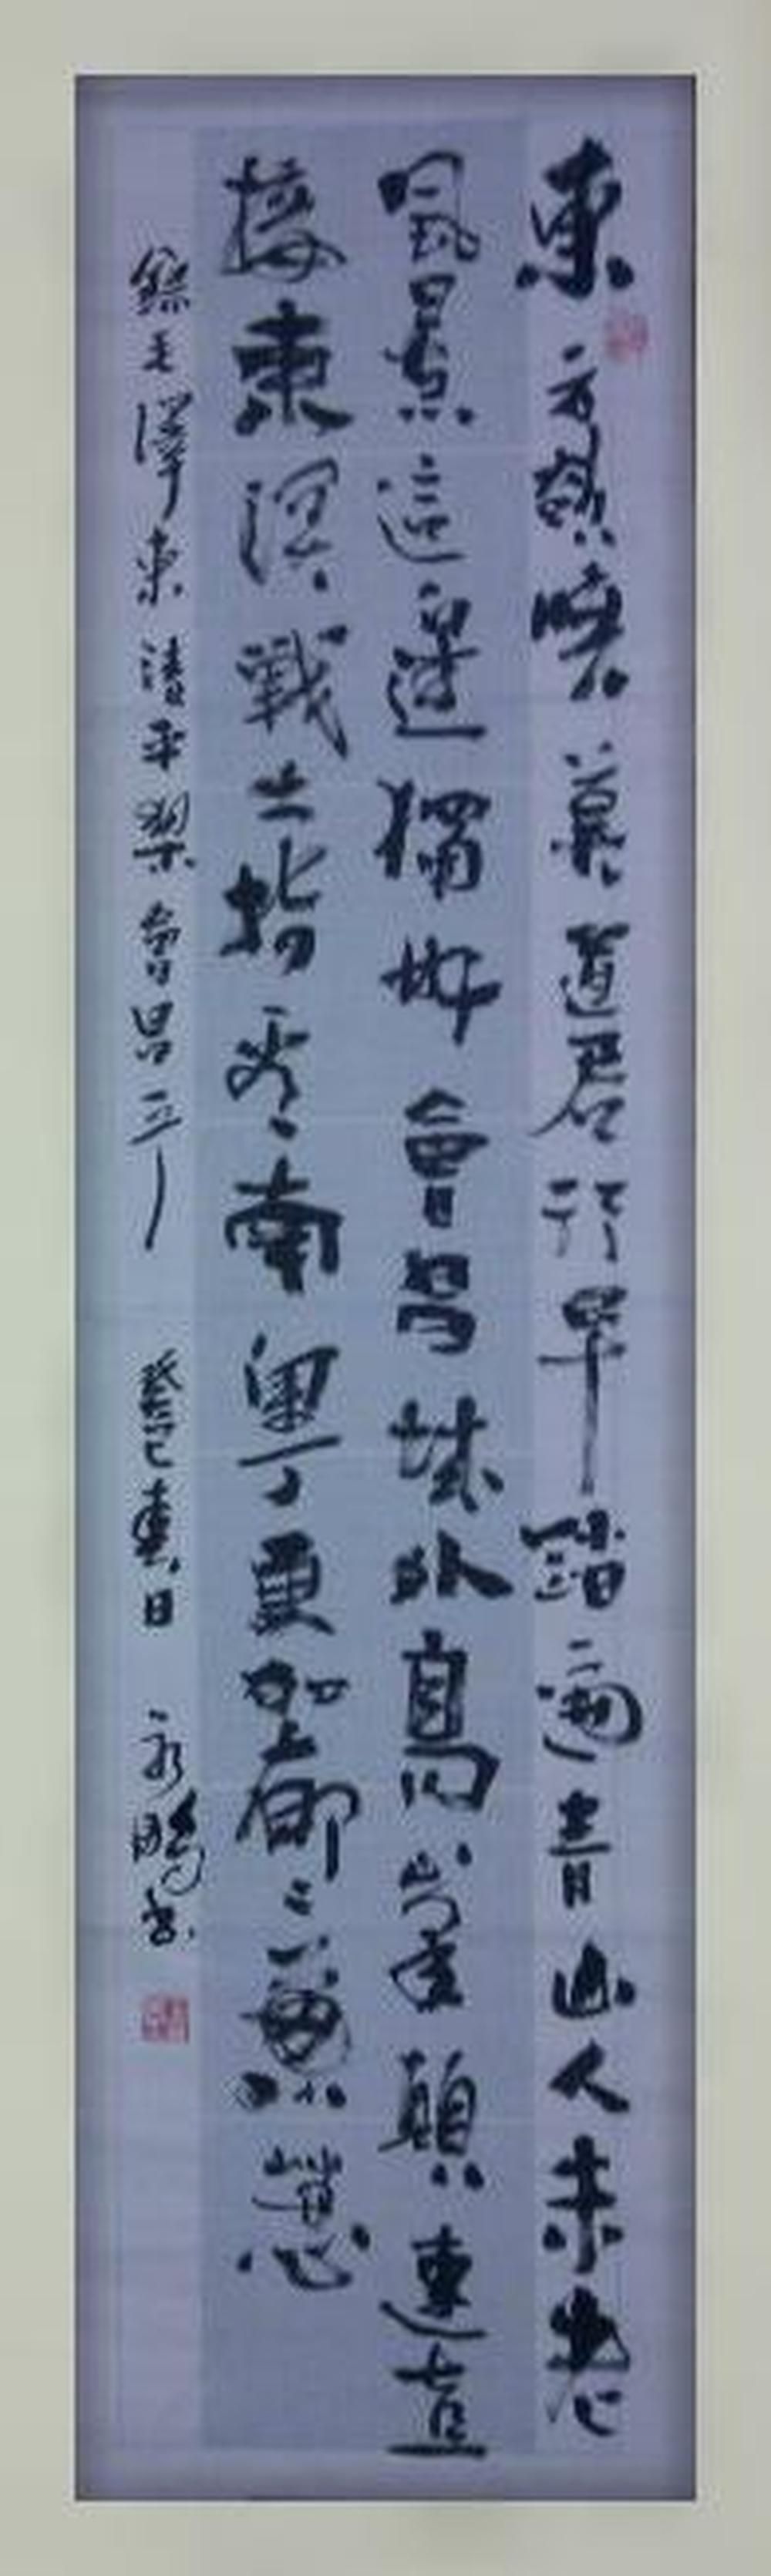 東方欲曉莫道君行早踏遍青山人未老
風景這邊獨好會昌城外高峯顛連直
接東溟戰士指看南粵更加郁〻蔥蔥
錄毛澤東清平樂會昌 癸巳春日 永鵬書